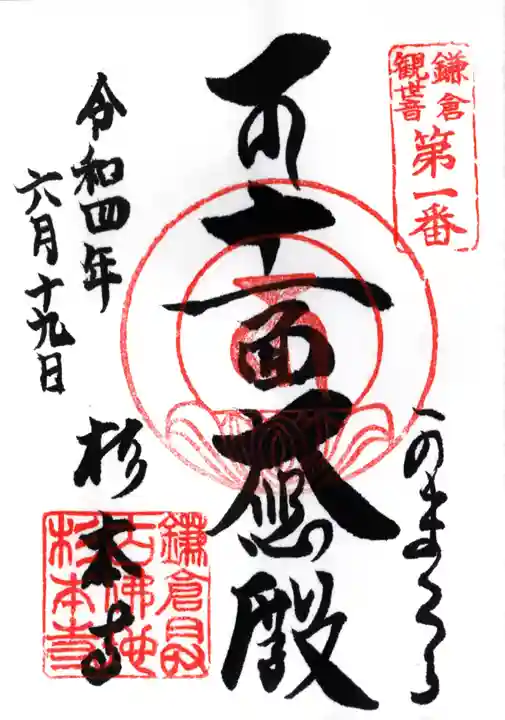 鎌倉
観世音
第一番
かまくら
十一面大悲殿
令和四年
六月十九日
杉本寺
鎌倉最
古佛地
杉本寺